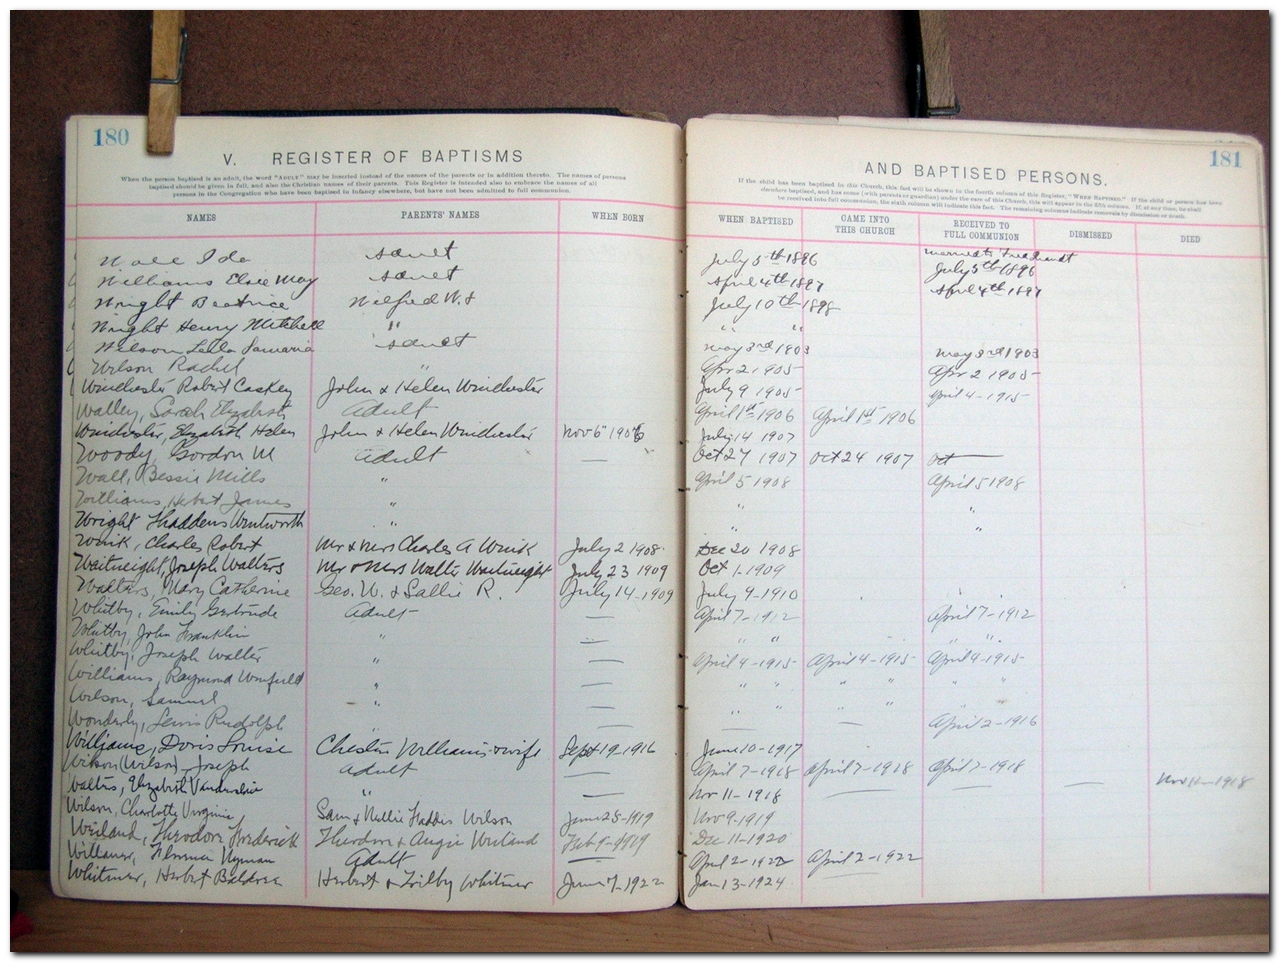 180
V. REGISTER OF BAPTISMS
When the person baptized is an adult, the word "ADULT" may be inserted instead of the names of the parents or in addition thereto. The names of persons
baptized should be given in full, and also the Christian names of their parents. This Register is intended also to embrace the names of all
persons in the Congregation who have been baptized in infancy elsewhere, but have not been admitted to full communion.
NAMES PARENTS' NAMES WHEN BORN
Ida adult
Williams Elsie May adult
Wright Beatrice Wilfred W. &
Wright Henry Mitchell "
Wilson Lella Samaria adult
Wilson Rachel "
Winchester Robert Caskey John & Helen Winchester
Walley, Sarah Elizabeth Adult
Winchester, Elizabeth Helen John & Helen Winchester Nov 6" 1906
Woody, Gordon M Adult —
Wall, Bessie Mills "
Williams, Hebert James "
Wright Thaddens Wentworth "
Wink, Charles Robert Mr & Mrs Charles A Wink July 2 1908
Waitneight, Joseph Walters Mr & Mrs Walter Waitneight July 23 1909
Walters, Mary Catherine Geo. W. & Sallie R. July 14-1909
Whitby, Emily Gertrude Adult —
Whitby, John Franklin " —
Whitby, Joseph Walter " —
Williams, Raymond Winfield " —
Wilson, Samuel " —
Wonderly, Lewis Rudolph —
Williams, Doris Louise Chester Williams & wife Sept 19-1916
Wilson (Wilson) Joseph Adult —
Walters, Elizabeth " —
Wilson, Charlotte Virginia Sam & Nellie Haddis Wilson June 25-1919
Weiland, Theodore Frederick Theodore & Angie Weiland Feb 9-1919
Florence Hyman Adult —
Whitmer, Herbert Herbert & Trilby Whitmer June 7-1922
181
AND BAPTISED PERSONS.
If the child has been baptized in this Church, this fact will be shown in the fourth column of this Register, "WHEN BAPTISED." If the child or person has been
elsewhere baptized, and has come (with parents or guardian) under the care of this Church, this will appear in the fifth column. If, at any time, he shall
be received into full communion, the sixth column will indicate this fact. The remaining columns indicate removals by dismission or death.
WHEN BAPTISED CAME INTO THIS CHURCH RECEIVED TO FULL COMMUNION DISMISSED DIED
married
July 5th 1896 July 5th 1896
April 4th 1897 April 4th 1897
July 10th 1898
" "
May 3rd 1903 May 3rd 1903
Apr 2 1905 Apr 2 1905
July 9 1905 April 4-1915
April 1st 1906 April 1st 1906
July 14 1907
Oct 27 1907 Oct 24 1907 Oct
April 5 1908 April 5 1908
" "
" "
Dec 20 1908
Oct 1-1909
July 9-1910
April 7-1912 April 7-1912
" " " "
April 4-1915 April 4-1915 April 4-1915
" " " " " "
" " " " " "
— April 2-1916
June 10-1917
April 7-1918 April 7-1918 April 7-1918
Nov 11-1918 — — — Nov 11-1918
Nov 9-1919
Dec 11-1920
April 2-1922 April 2-1922
Jan 13-1924